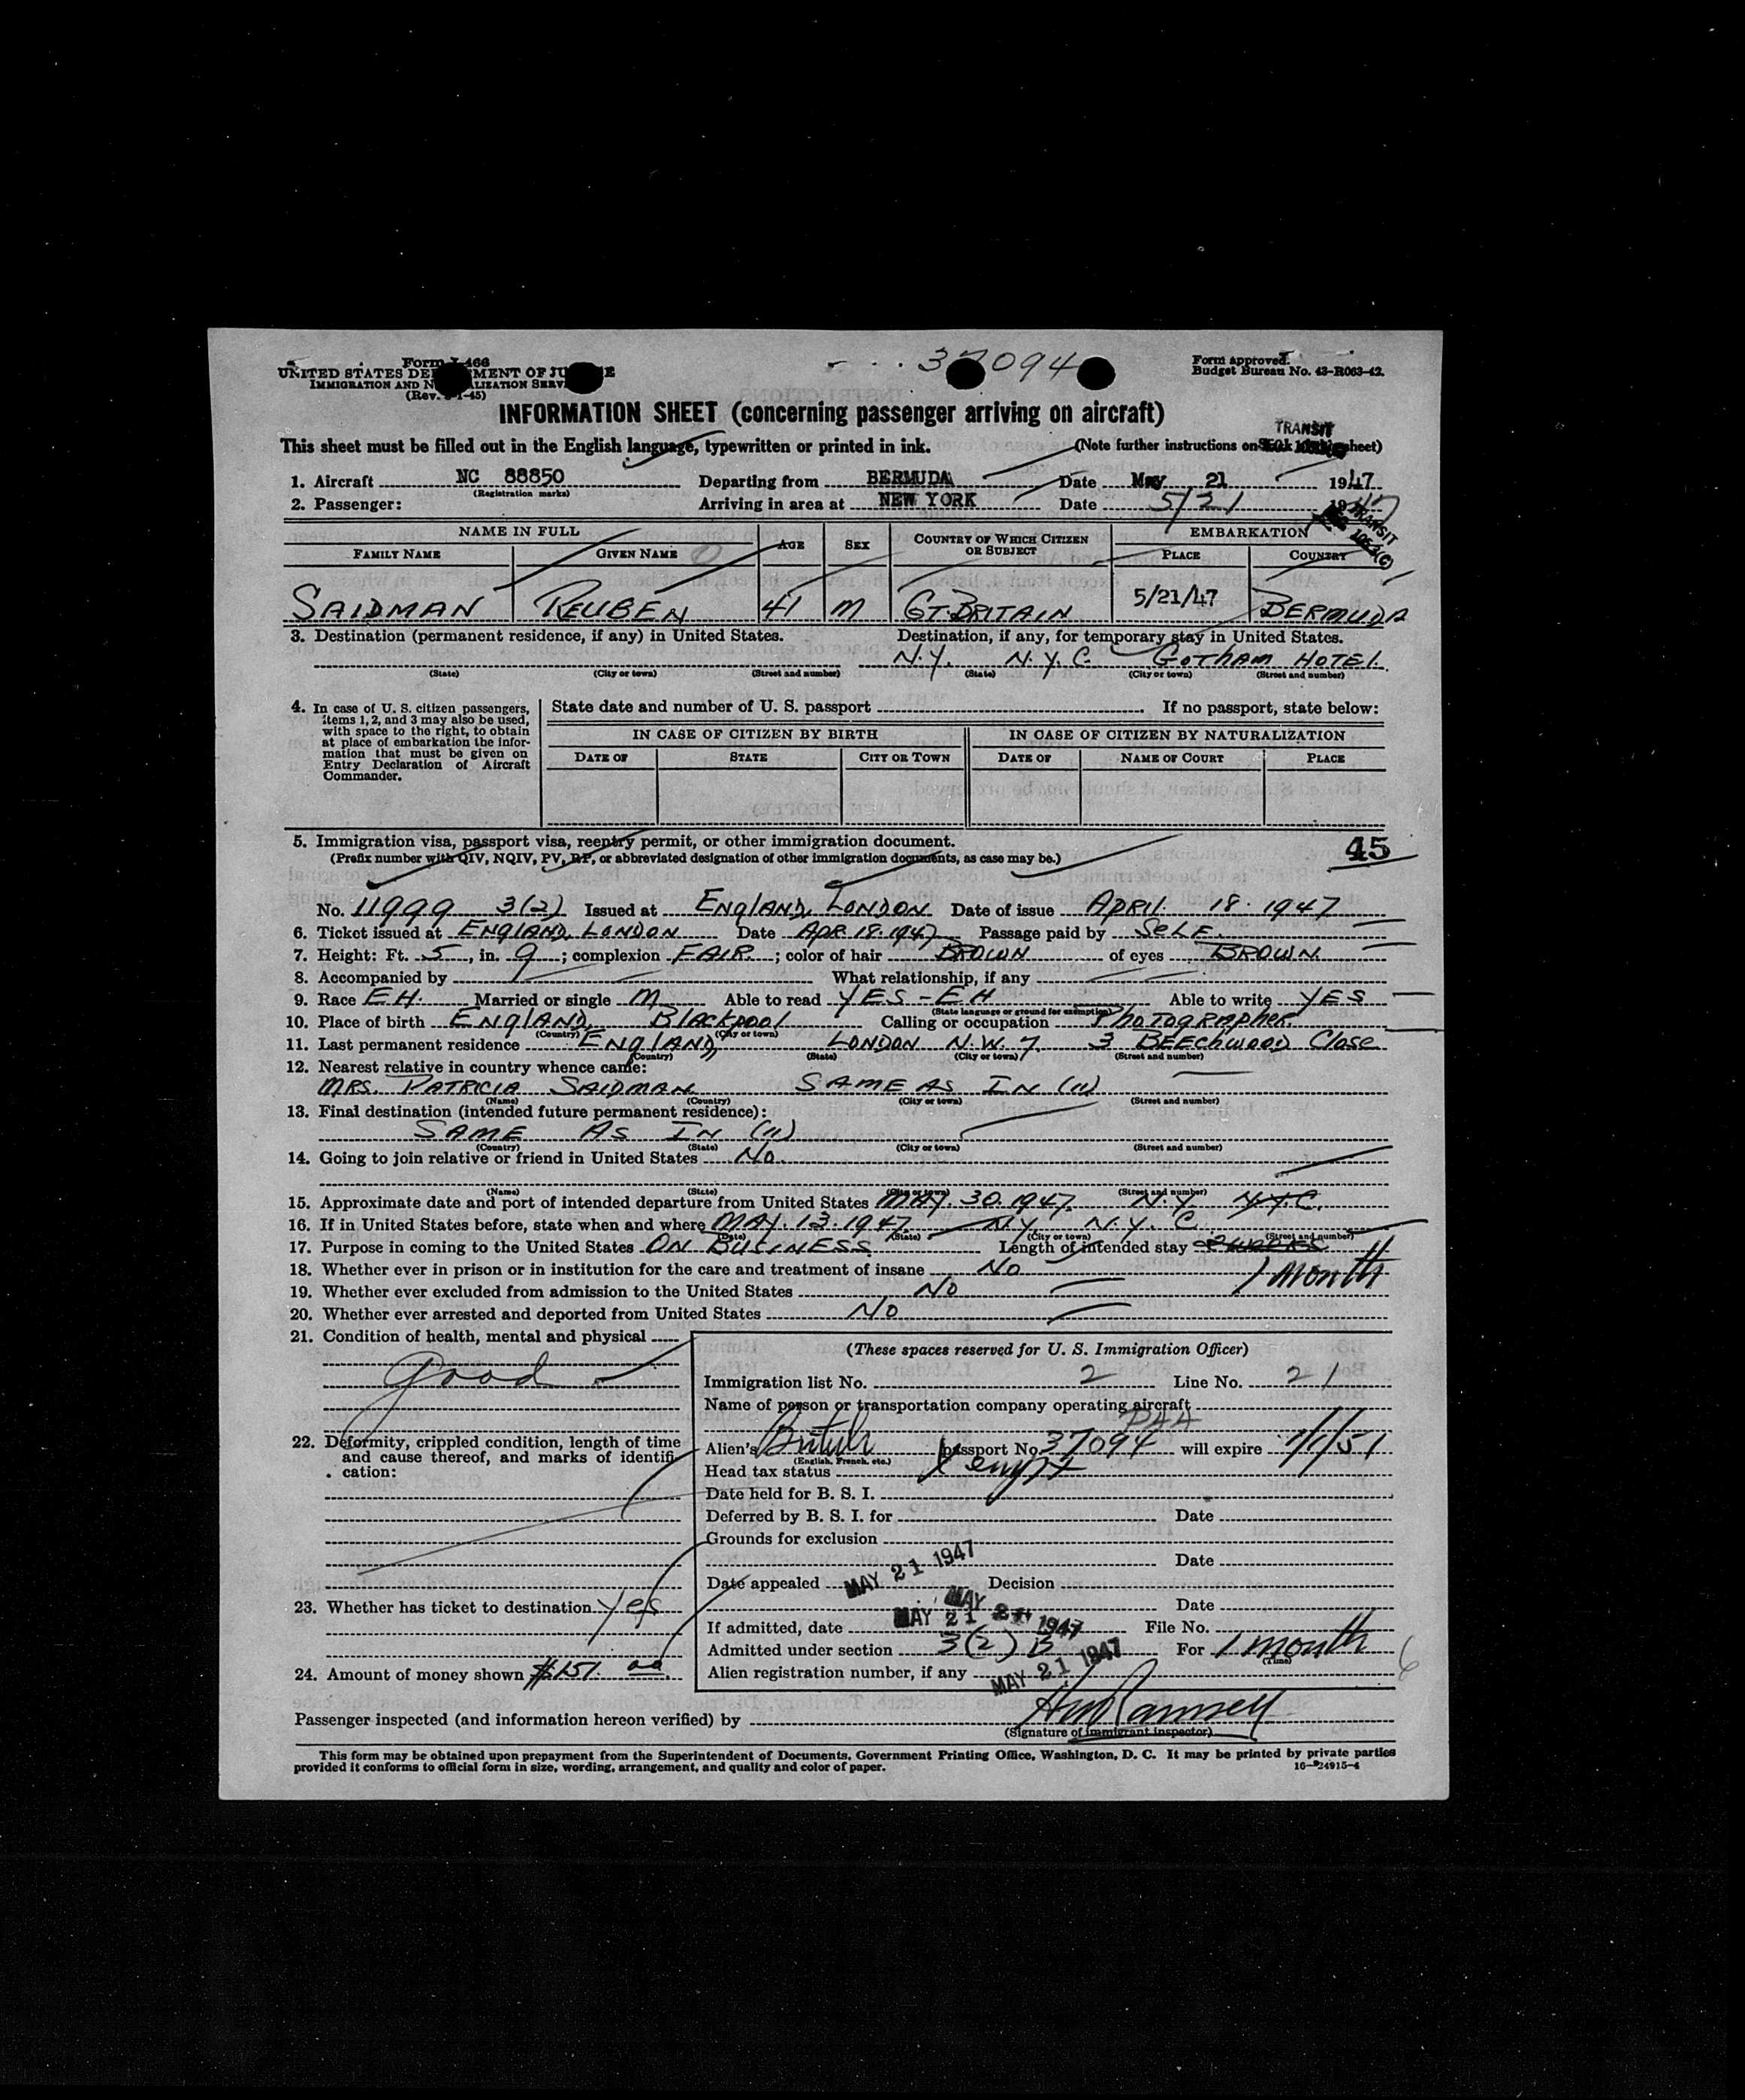 Form I-466
UNITED STATES DEPARTMENT OF JUSTICE
IMMIGRATION AND NATURALIZATION SERVICE
(Rev. 1-45)
37094
Form approved.
Budget Bureau No. 43-R063-42.
INFORMATION SHEET (concerning passenger arriving on aircraft)
TRANSIT
This sheet must be filled out in the English language, typewritten or printed in ink. (Note further instructions on back of this sheet)
1. Aircraft NC 88850 Departing from BERMUDA Date May 21 1947
(Registration marks)
2. Passenger: Arriving in area at NEW YORK Date 5/21 1947
TRANSIT
NAME IN FULL AGE SEX COUNTRY OF WHICH CITIZEN OR SUBJECT EMBARKATION
FAMILY NAME GIVEN NAME PLACE COUNTRY
SAIDMAN REUBEN 41 M GT. BRITAIN 5/21/47 BERMUDA
3. Destination (permanent residence, if any) in United States. Destination, if any, for temporary stay in United States.
N.Y. N.Y.C. GOTHAM HOTEL.
(State) (City or town) (Street and number) (State) (City or town) (Street and number)
4. In case of U. S. citizen passengers, items 1, 2, and 3 may also be used, with space to the right, to obtain at place of embarkation the information that must be given on Entry Declaration of Aircraft Commander.
State date and number of U. S. passport If no passport, state below:
IN CASE OF CITIZEN BY BIRTH IN CASE OF CITIZEN BY NATURALIZATION
DATE OF STATE CITY OR TOWN DATE OF NAME OF COURT PLACE
5. Immigration visa, passport visa, reentry permit, or other immigration document. 45
(Prefix number with QIV, NQIV, PV, RP, or abbreviated designation of other immigration documents, as case may be.)
No. 11999 3(2) Issued at ENGLAND, LONDON Date of issue APRIL 18. 1947
6. Ticket issued at ENGLAND, LONDON Date APR 18.1947 Passage paid by SELF.
7. Height: Ft. 5, in. 9; complexion FAIR.; color of hair BROWN of eyes BROWN.
8. Accompanied by What relationship, if any
9. Race EH. Married or single M Able to read YES - EH Able to write YES
(State language or ground for exemption)
10. Place of birth ENGLAND, Blackpool Calling or occupation PHOTOGRAPHER.
(Country) (City or town)
11. Last permanent residence ENGLAND, LONDON N.W.7. 3 BEECHWOOD Close
(Country) (State) (City or town) (Street and number)
12. Nearest relative in country whence came:
MRS. PATRICIA SAIDMAN SAME AS IN (11)
(Name) (Country) (City or town) (Street and number)
13. Final destination (intended future permanent residence):
SAME AS IN (11)
(Country) (State) (City or town) (Street and number)
14. Going to join relative or friend in United States No.
(Name) (State) (City or town) (Street and number)
15. Approximate date and port of intended departure from United States MAY. 30. 1947. N.Y. N.Y.C.
16. If in United States before, state when and where MAY. 13. 1947. N.Y. N.Y. C
(Date) (State) (City or town) (Street and number)
17. Purpose in coming to the United States ON BUSINESS Length of intended stay 2 weeks
1 month
18. Whether ever in prison or in institution for the care and treatment of insane No
19. Whether ever excluded from admission to the United States No
20. Whether ever arrested and deported from United States No
21. Condition of health, mental and physical
Good
22. Deformity, crippled condition, length of time and cause thereof, and marks of identification:
23. Whether has ticket to destination yes
24. Amount of money shown $151.00
(These spaces reserved for U. S. Immigration Officer)
Immigration list No. 2 Line No. 21
Name of person or transportation company operating aircraft
PAA
Alien's British passport No. 37094 will expire 1/1/51
(English, French, etc.)
Head tax status exempt
Date held for B. S. I.
Deferred by B. S. I. for Date
Grounds for exclusion
Date
Date appealed MAY 21 1947 Decision
Date
If admitted, date MAY 21 1947 File No.
Admitted under section 3(2) B For 1 month
(Time)
Alien registration number, if any MAY 21 1947
Passenger inspected (and information hereon verified) by
(Signature of immigrant inspector)
This form may be obtained upon prepayment from the Superintendent of Documents, Government Printing Office, Washington, D. C. It may be printed by private parties
provided it conforms to official form in size, wording, arrangement, and quality and color of paper. 16—24915-4